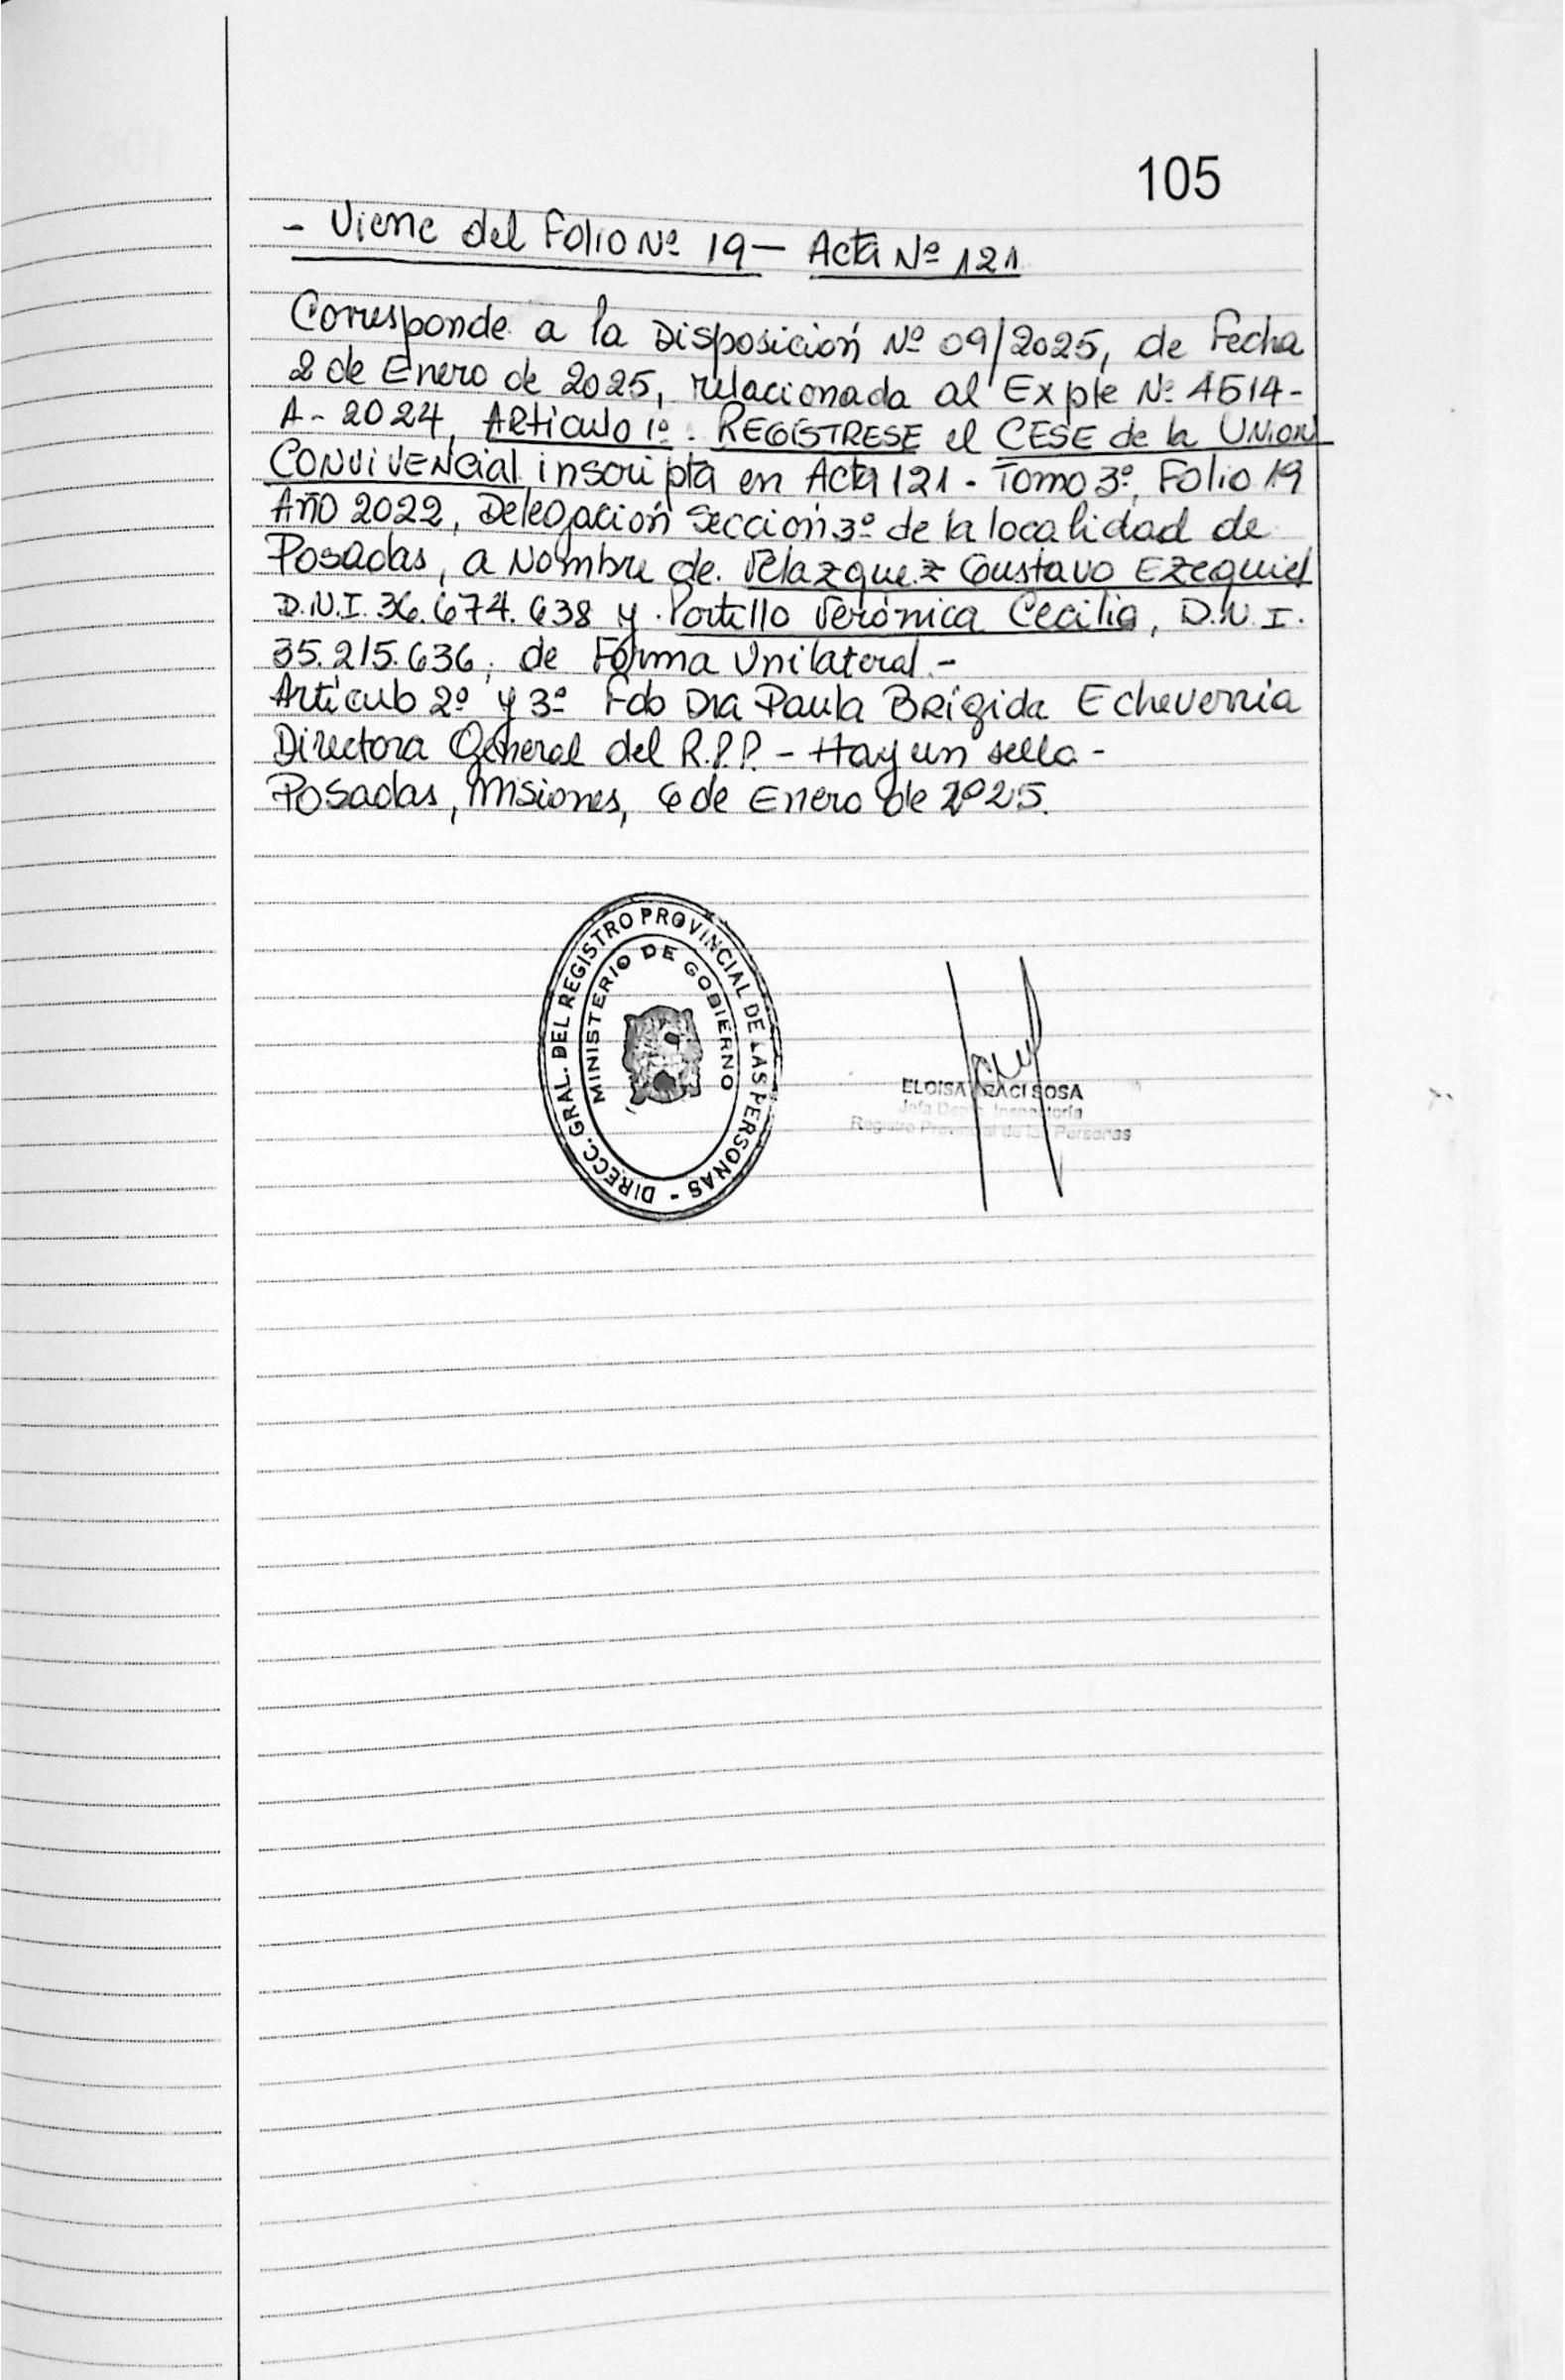 105
- Viene del Folio Nº 19 - Acta Nº 121
Corresponde a la Disposición Nº 09/2025, de Fecha
2 de Enero de 2025, relacionada al Expte Nº 4514-
A- 2024, Artículo 1º. REGÍSTRESE el CESE de la UNION
CONVIVENCIAL inscripta en Acta 121 - Tomo 3º, Folio 19
AÑO 2022, Delegación Sección 3º de la localidad de
Posadas, a Nombre de. Velazquez Gustavo Ezequiel
D.N.I. 36.674.638 y Portillo Verónica Cecilia, D.N.I.
35.215.636, de Forma Unilateral.-
Artículo 2º y 3º Fdo Dra Paula Brígida Echeverria
Directora General del R.P.P. - Hay un sello -
Posadas, Misiones, 6 de Enero de 2025.
DIRECC. GRAL. DEL REGISTRO PROVINCIAL DE LAS PERSONAS -
MINISTERIO DE GOBIERNO
ELOISA SOSA
Registro Provincial de las Personas